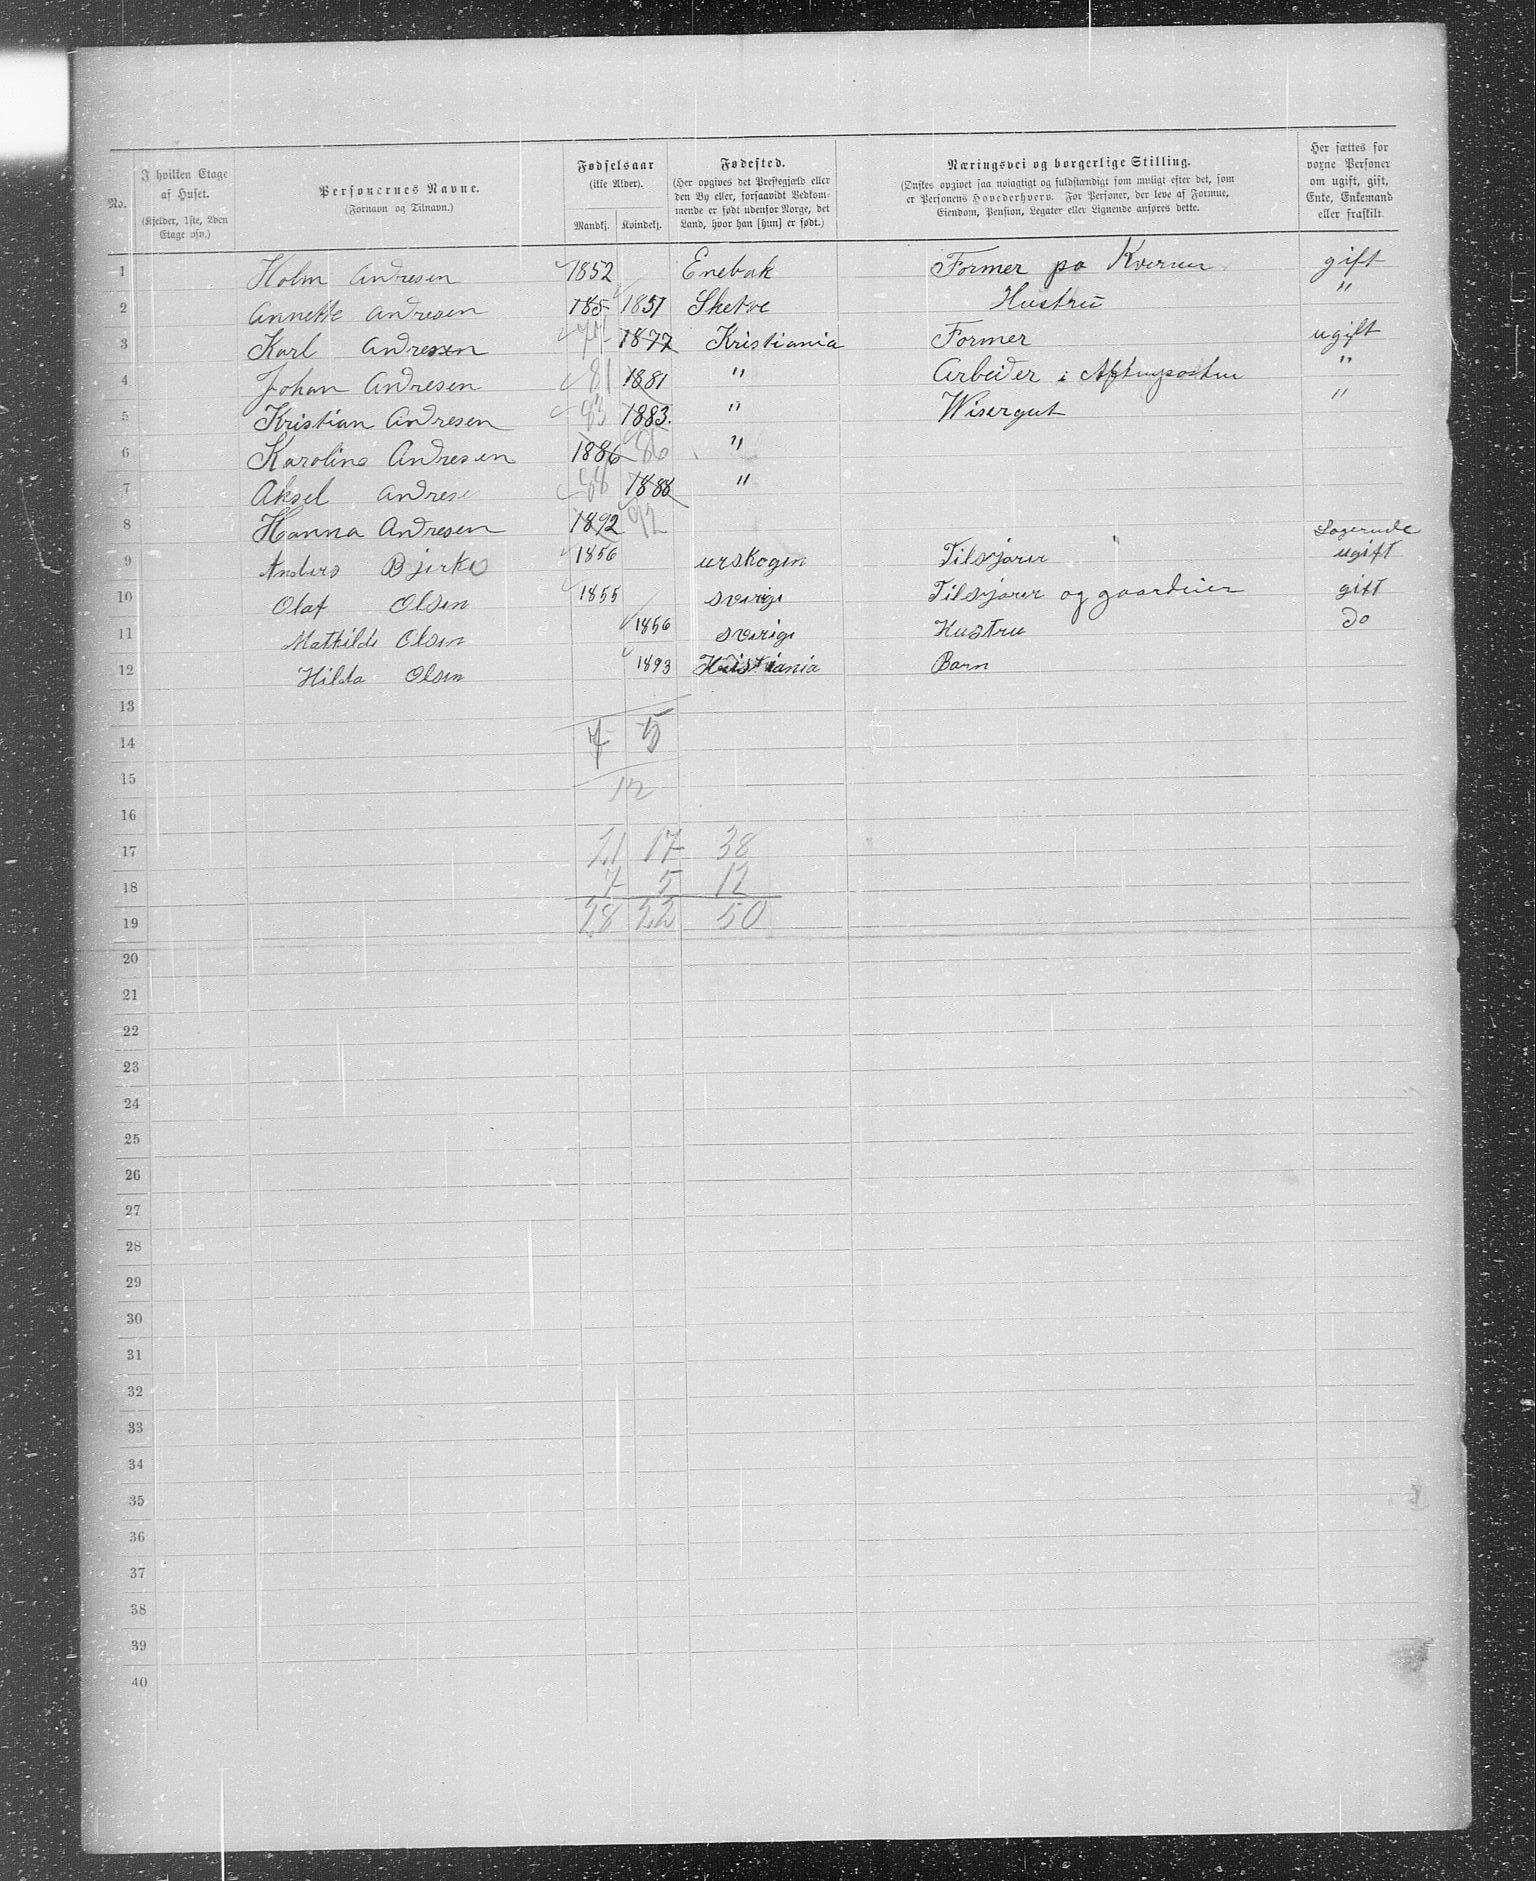 No.
I hvilken Etage af Huset.
(Kjelder, 1ste, 2den Etage osv.)
Personernes Navne.
(Fornavn og Tilnavn.)
Fødselsaar
(ikke Alder).
Mandkj. Kvindekj.
Fødested.
(Her opgives det Prestegjæld eller
den By eller, forsaavidt Vedkom-
mende er født udenfor Norge, det
Land, hvor han [hun] er født.)
Næringsvei og borgerlige Stilling.
(Ønskes opgivet saa nøiagtigt og fuldstændigt som muligt efter det, som
er Personens Hovederhverv. For Personer, der leve af Formue,
Eiendom, Pension, Legater eller Lignende anføres dette.
Her sættes for
voxne Personer
om ugift, gift,
Enke, Enkemand
eller fraskilt.
1 Holm Andresen 1852 Enebak Former pa Kverner gift
2 Annette Andresen 185 1851 Sketve Hustru "
3 Karl Andresen 77 1877 Kristiania Former ugift
4 Johan Andresen 81 1881 " Arbeider i Aftenposten "
5 Kristian Andresen 83 1883. " Wisergut "
6 Karoline Andresen 1886 86 "
7 Aksel Andrese 88 1888 "
8 Hanna Andresen 1892 92
Logerende
9 Anders Bjerke 1856 urskogen Tilsyjarer ugift
10 Olaf Olsen 1855 sverige Tilsyjarer og gaardeier gift
11 Mathilde Olsen 1856 sverige Hustru do
12 Hilda Olsen 1893 Kristiania Barn
13
14 7 5
15 12
16
17 21 17 38
18 7 5 12
19 28 22 50
20
21
22
23
24
25
26
27
28
29
30
31
32
33
34
35
36
37
38
39
40